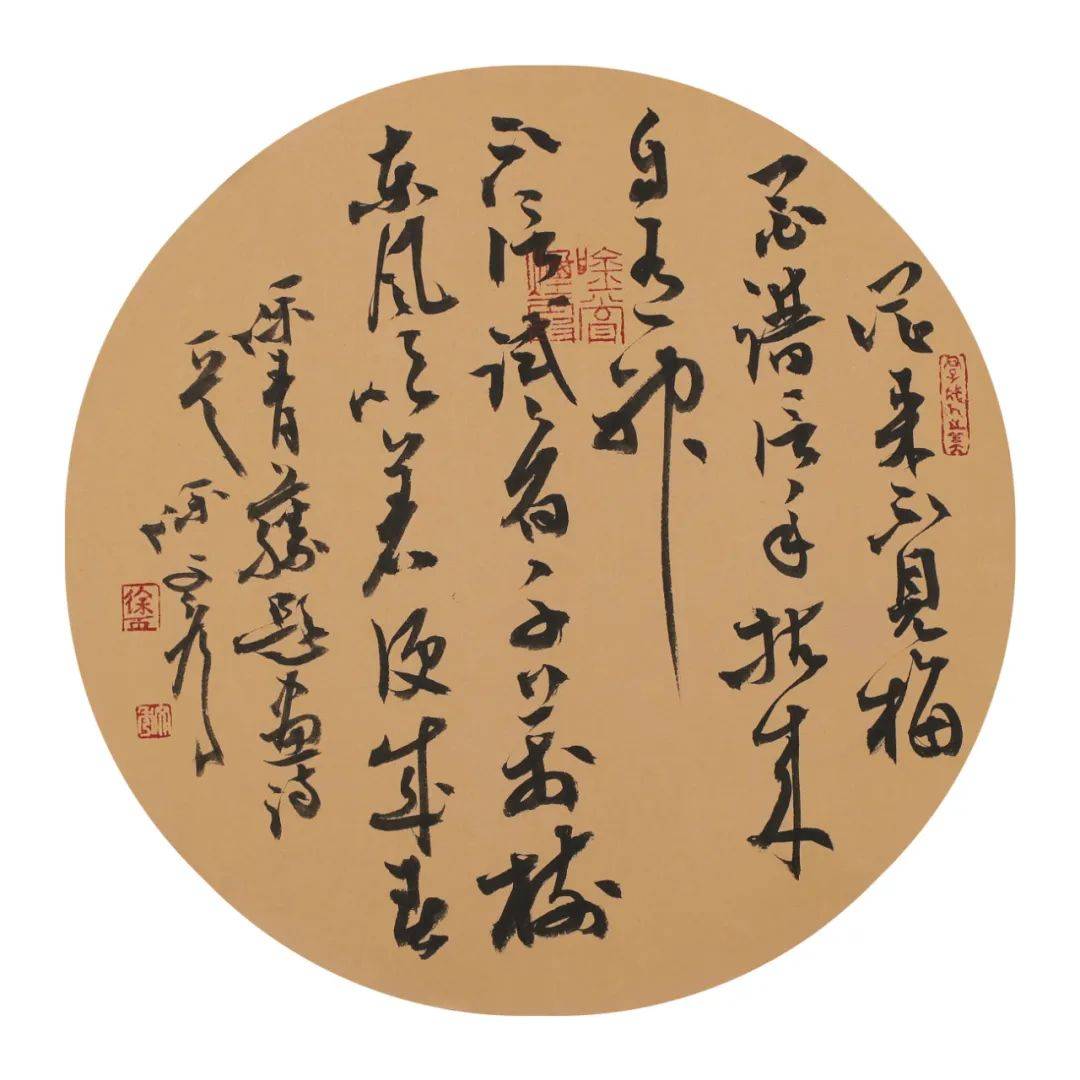 從来不見梅
花譜信手拈來
自有神
不信試看千萬樹
東風吹著便成春
徐青藤題畫詩